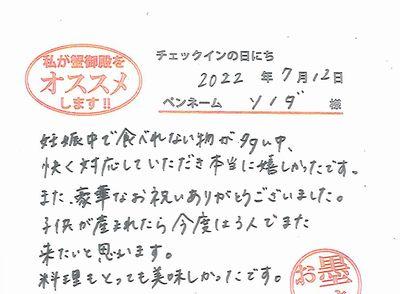 私が蟹御殿を
オススメ
します!!
チェックインの日にち
2022 年 7月12日
ペンネーム ソノダ 様
妊娠中で食べれない物が多い中、
快く対応していただき本当に嬉しかったです。
また、豪華なお祝いありがとうございました。
子供が産まれたら今度は3人でまた
来たいと思います。
料理もとっても美味しかったです。
お墨